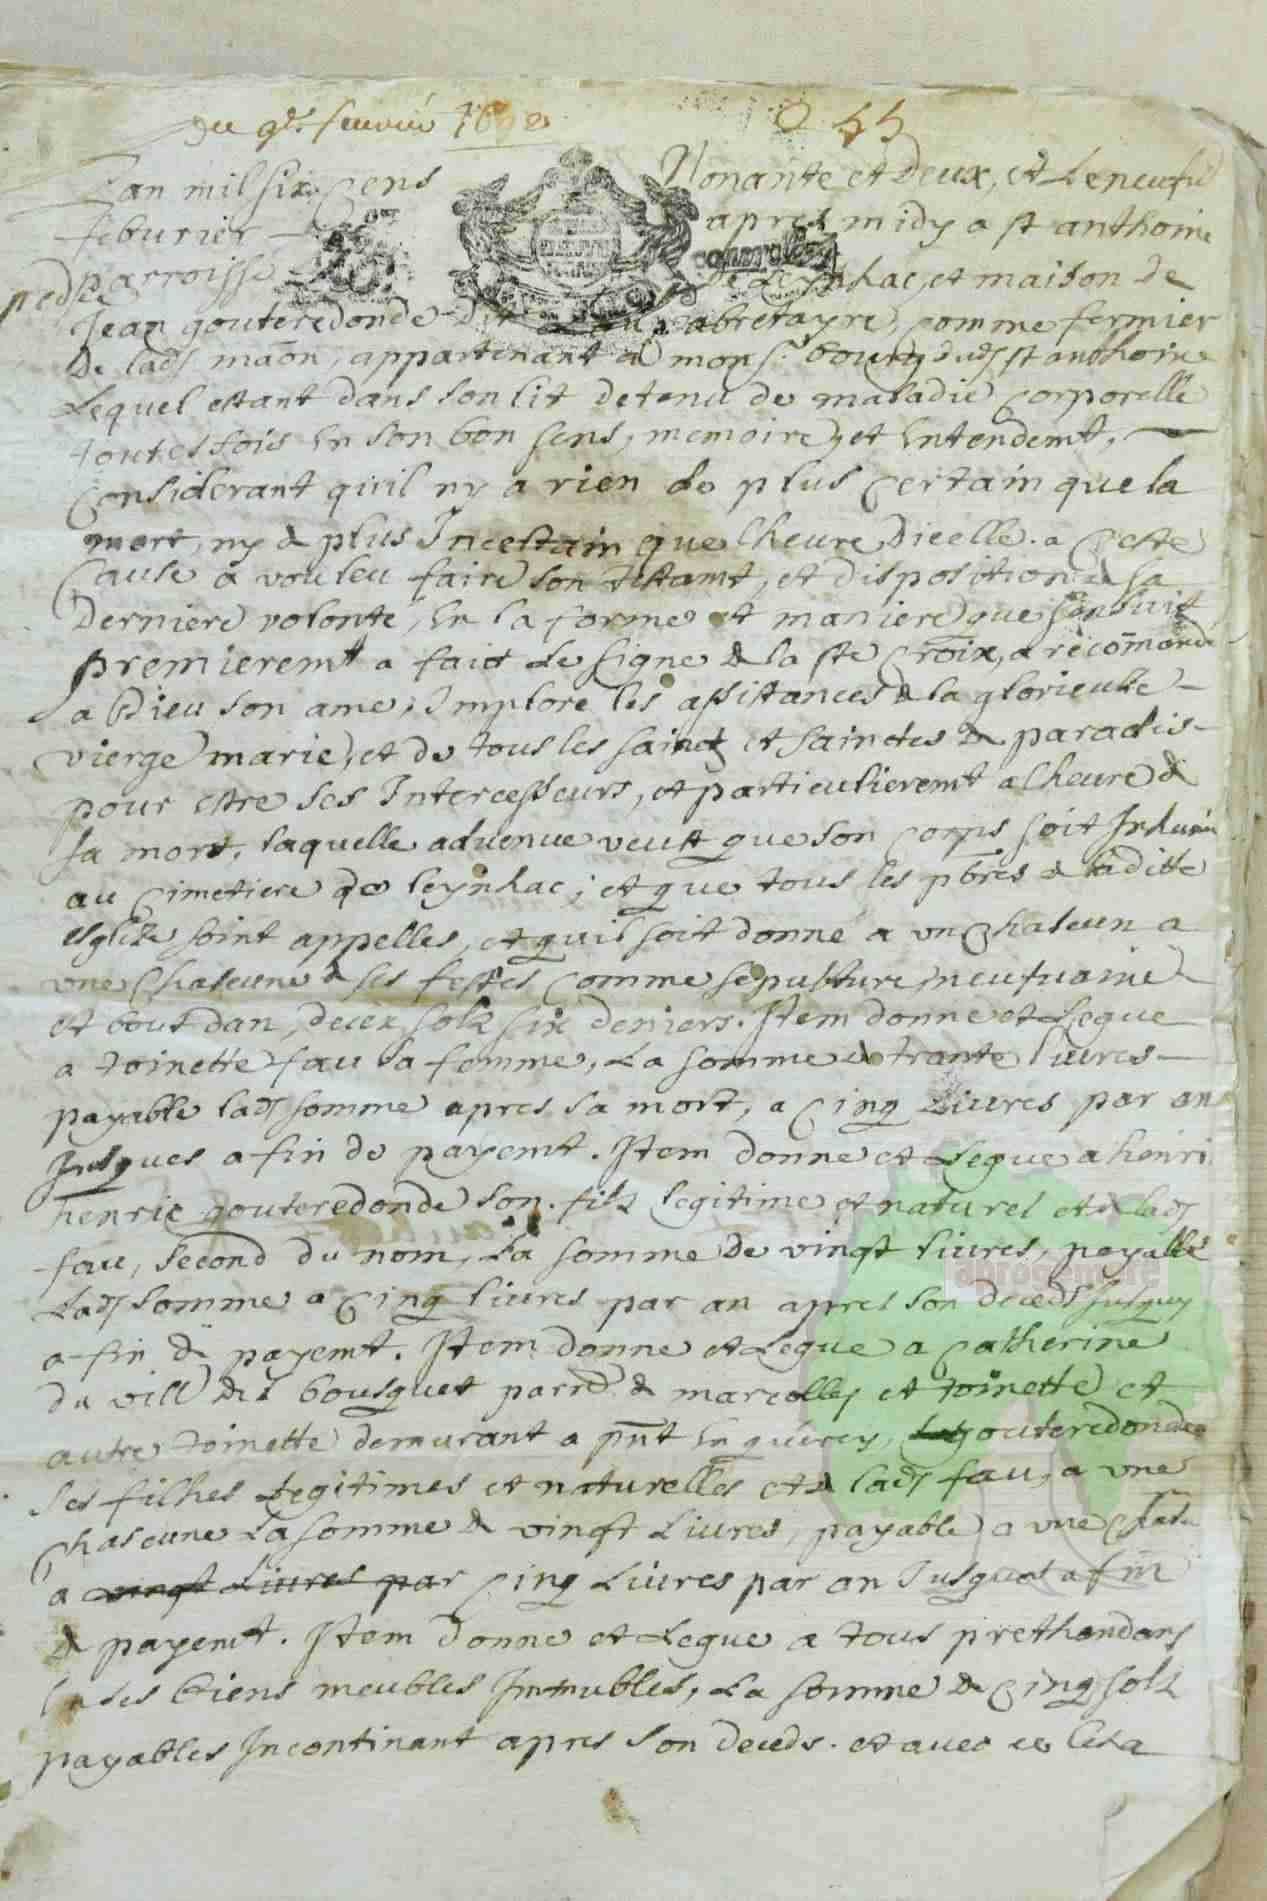 du 9e feuvrié 1692
Lan mil six cens Nonante et deux, et le neufvie
feburier apres midy a st anthoine
parroisse de Leynhac, et maison de
Jean gouteredonde dit cabretayre, comme fermier
de lad maōn, appartenant a mons.r bourg dud st anthoine
Lequel estant dans son lit detenu de maladie corporelle
toutesfois en son bon sens, memoire, et entendemt,
Considerant quil ny a rien de plus certain que la
mort, ny de plus Incertain que lheure dicelle. a ceste
Cause a vouleu faire son testamt, et disposition de sa
derniere volonte, en la forme et maniere que sensuit
premieremt a faict le signe de la ste croix, a recōmandé
a Dieu son ame, Implore les assistances de la glorieuse
vierge marie, et de tous les saincts et sainctes de paradis
pour estre ses Intercesseurs, et particulieremt a lheure de
sa mort, laquelle advenue veut que son corps soit Inhumé
au cimetiere de leynhac; et que tous les pbres de laditte
esglize soint appelles, et quil soit donne a un chascun a
une chascune de ses festes comme sepulture neufvaine
et bout dan, decex solz six deniers. Item donne et legue
a toinette fau sa femme, la somme de trante livres
payable lad somme apres sa mort, a cinq livres par an
Jusques a fin de payemt. Item donne et legue a henri
henric gouteredonde son filz legitime et naturel et de lad
fau, second du nom, la somme de vingt livres, payable
lad somme a cinq livres par an apres son deceds Jusques
a fin de payemt. Item donne et legue a catherine
du vill del bousquet parr de marcolles et toinette et
autre toinette demurant a pnt en quercy, gouteredondes
ses filhes legitimes et naturelles et de lad fau, a une
chascune la somme de vingt livres, payable a une chascu
a vingt livres par cinq livres par an Jusques a fin
de payemt. Item donne et legue a tous prethandans
en ses biens meubles Immubles, la somme de cinq solz
payables Incontinant apres son deceds. et avec ce les a
aprogemere